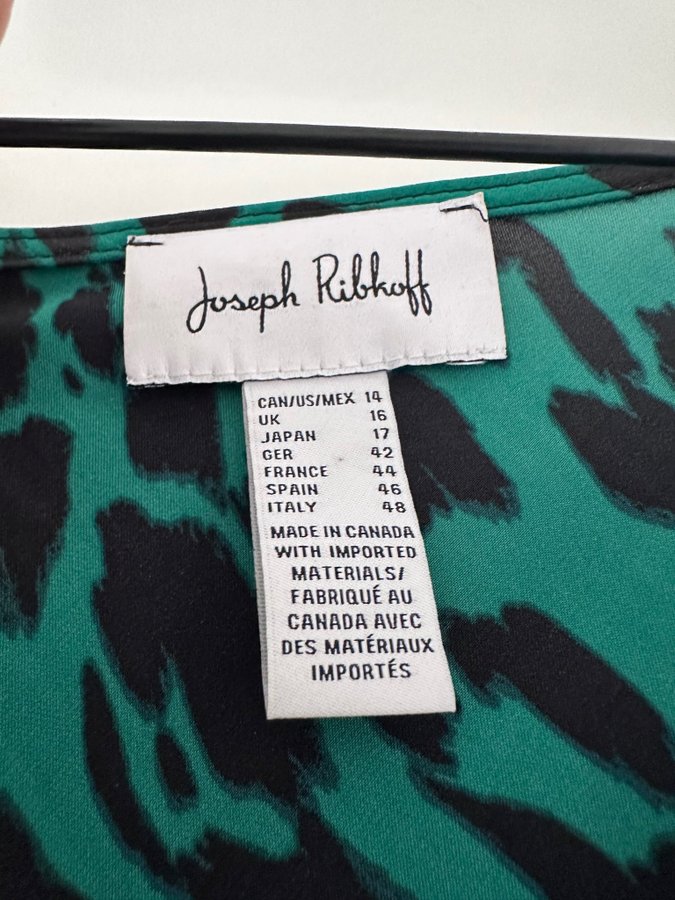 Joseph Ribkoff
CAN/US/MEX 14
UK 16
JAPAN 17
GER 42
FRANCE 44
SPAIN 46
ITALY 48
MADE IN CANADA
WITH IMPORTED
MATERIALS/
FABRIQUÉ AU
CANADA AVEC
DES MATÉRIAUX
IMPORTÉS